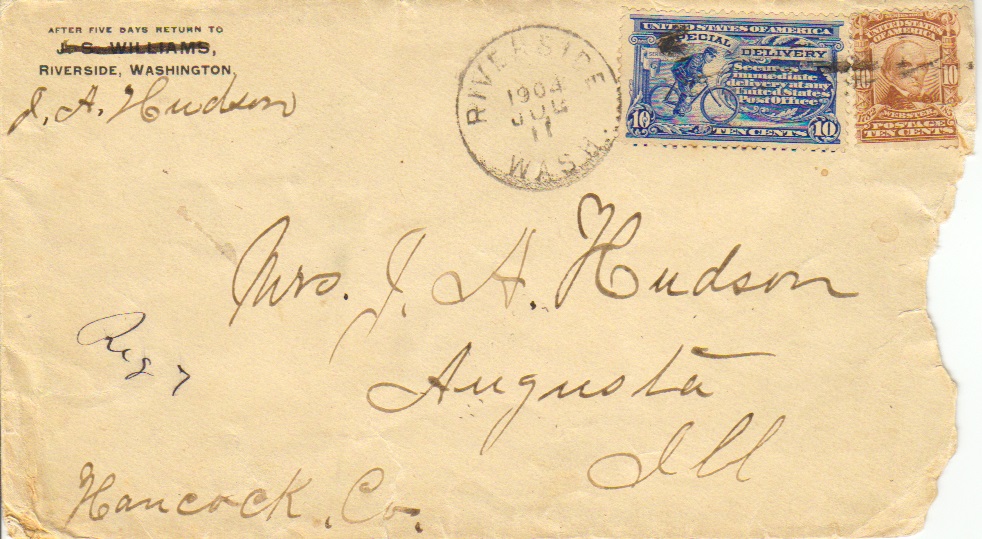 AFTER FIVE DAYS RETURN TO
J. S. WILLIAMS,
RIVERSIDE, WASHINGTON.
J. A. Hudson
RIVERSIDE
1904
JUL
11
WASH.
UNITED STATES OF AMERICA
SPECIAL DELIVERY
Secures
immediate
delivery at any
United States
Post Office
10 TEN CENTS 10
UNITED STATES
OF AMERICA
10 10
WEBSTER
POSTAGE
TEN CENTS
Mrs. J. A. Hudson
Augusta
Ill
Reg 7
Hancock, Co.